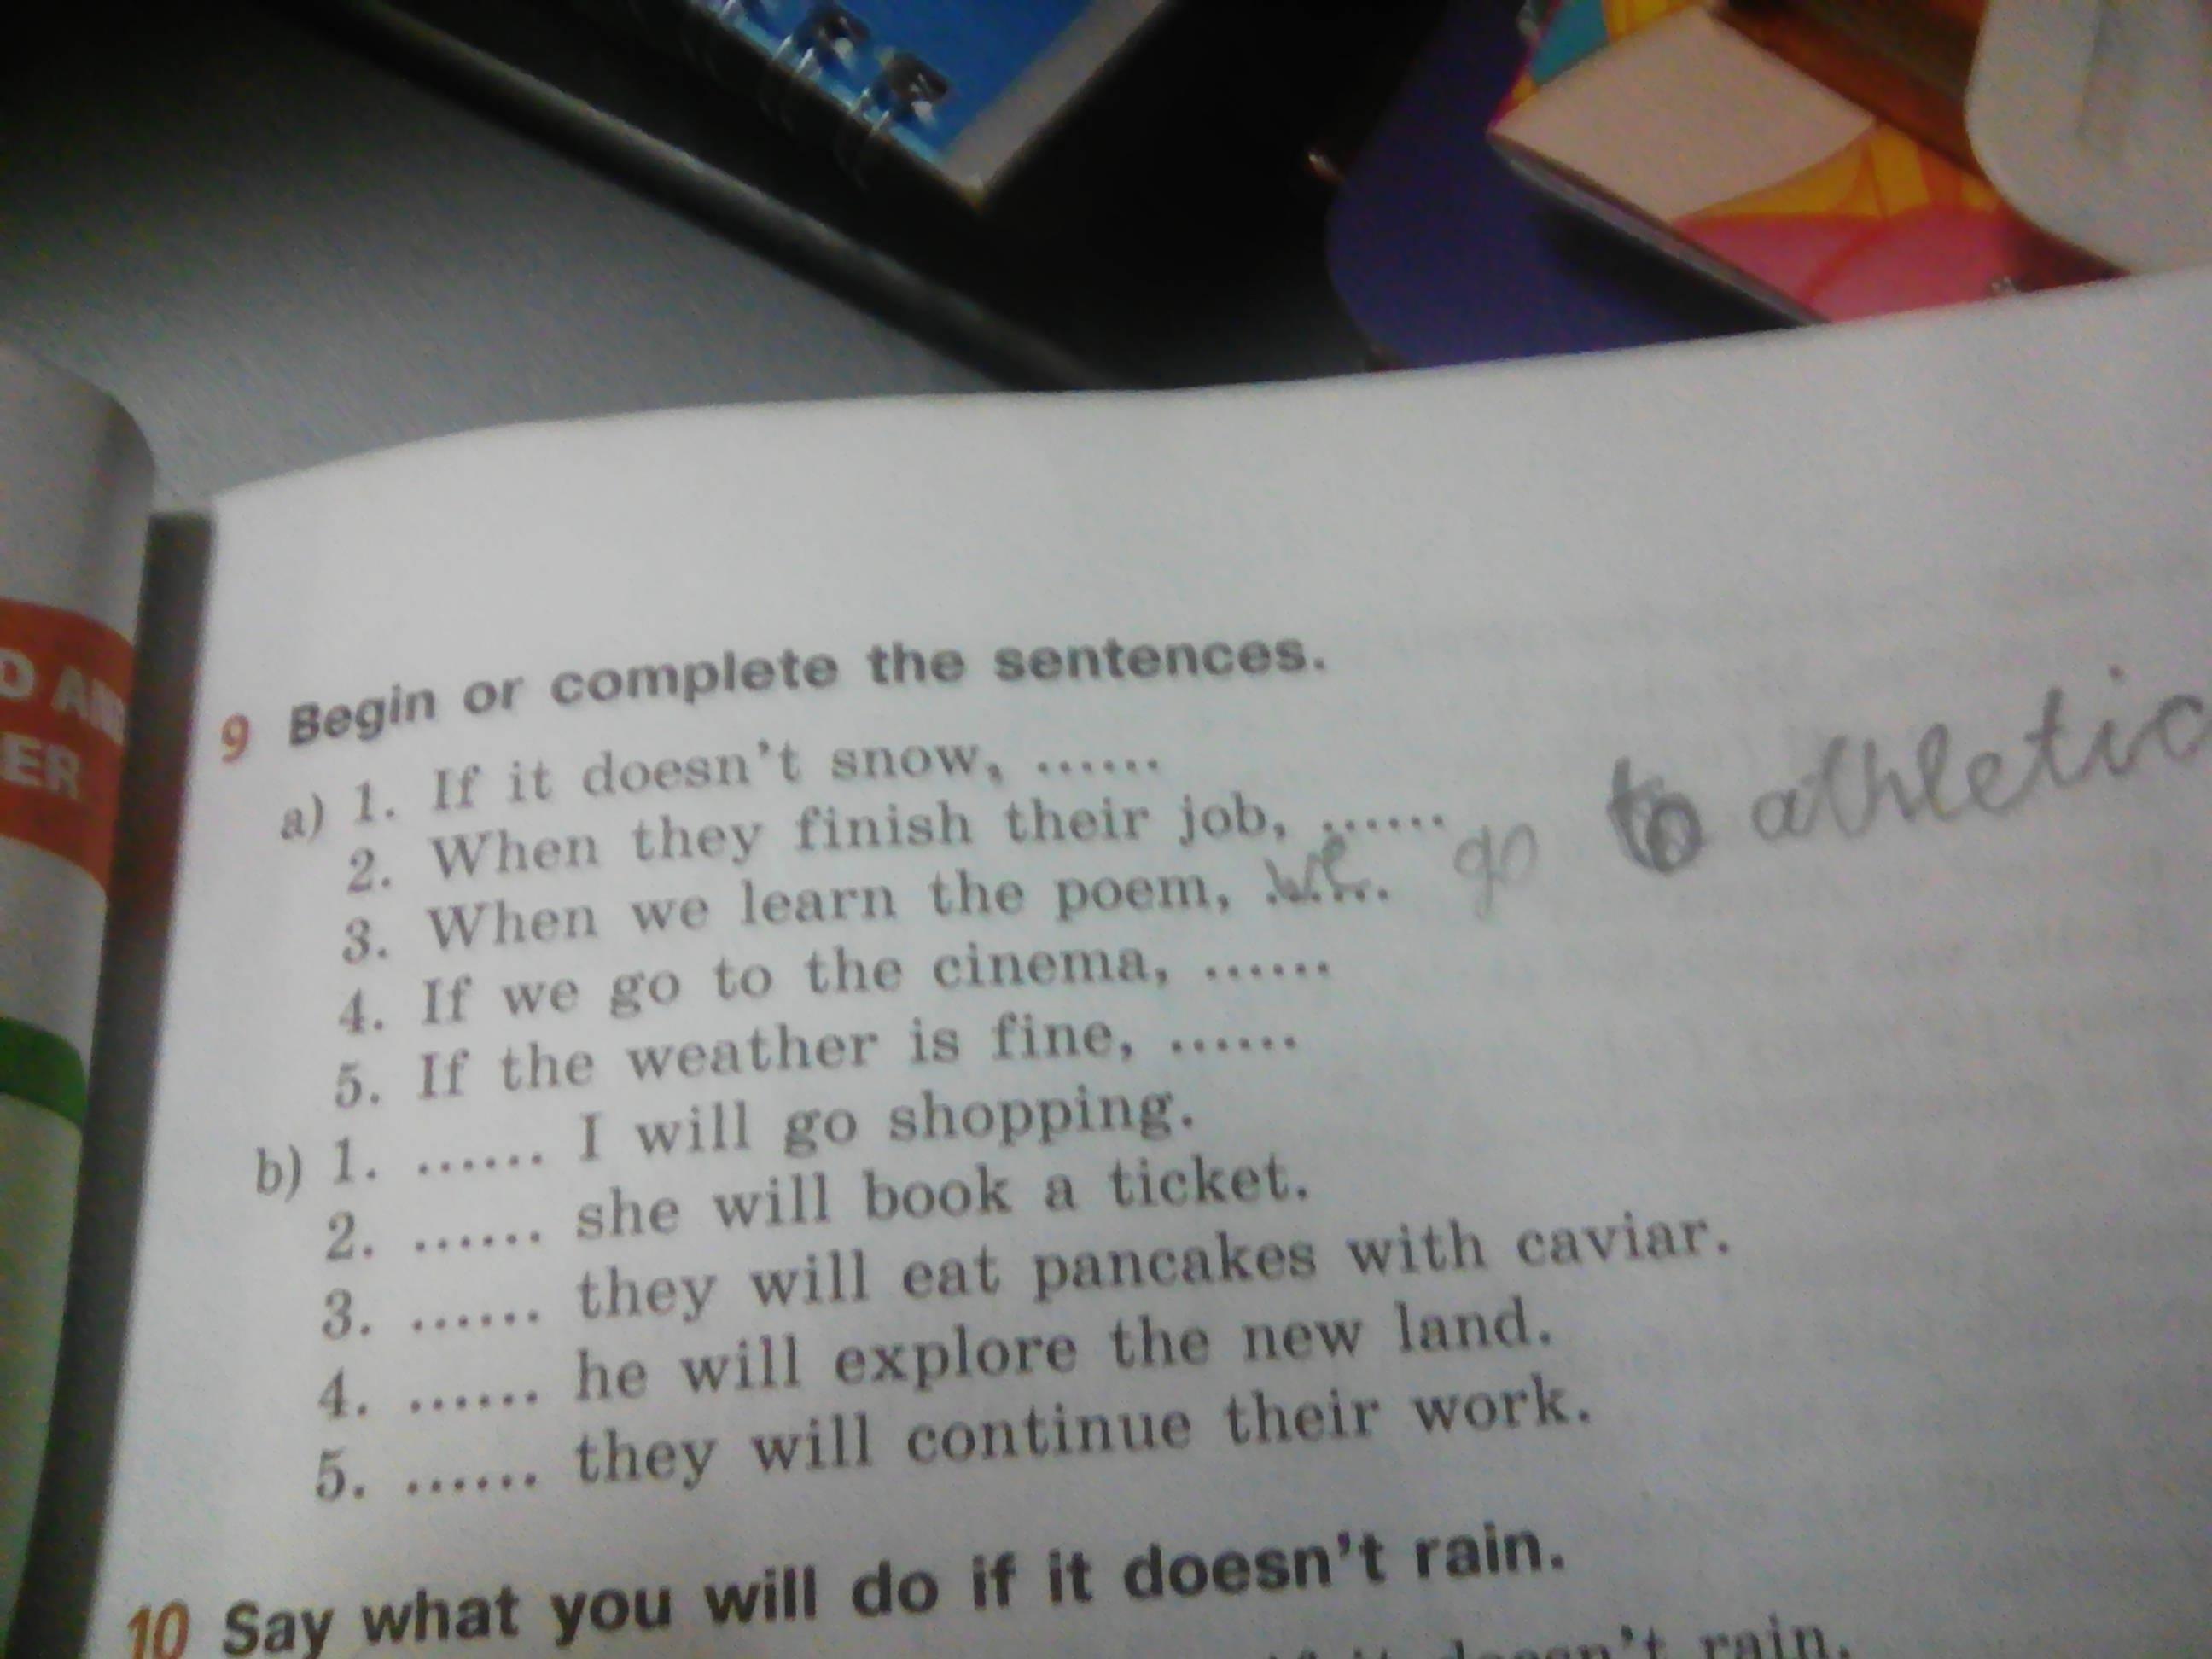 D AN
ER
9 Begin or complete the sentences.
a) 1. If it doesn't snow, ......
2. When they finish their job, ......
3. When we learn the poem, we go to athletic
4. If we go to the cinema, ......
5. If the weather is fine, ......
b) 1. ...... I will go shopping.
2. ...... she will book a ticket.
3. ...... they will eat pancakes with caviar.
4. ...... he will explore the new land.
5. ...... they will continue their work.
10 Say what you will do if it doesn't rain.
if it doesn't rain.